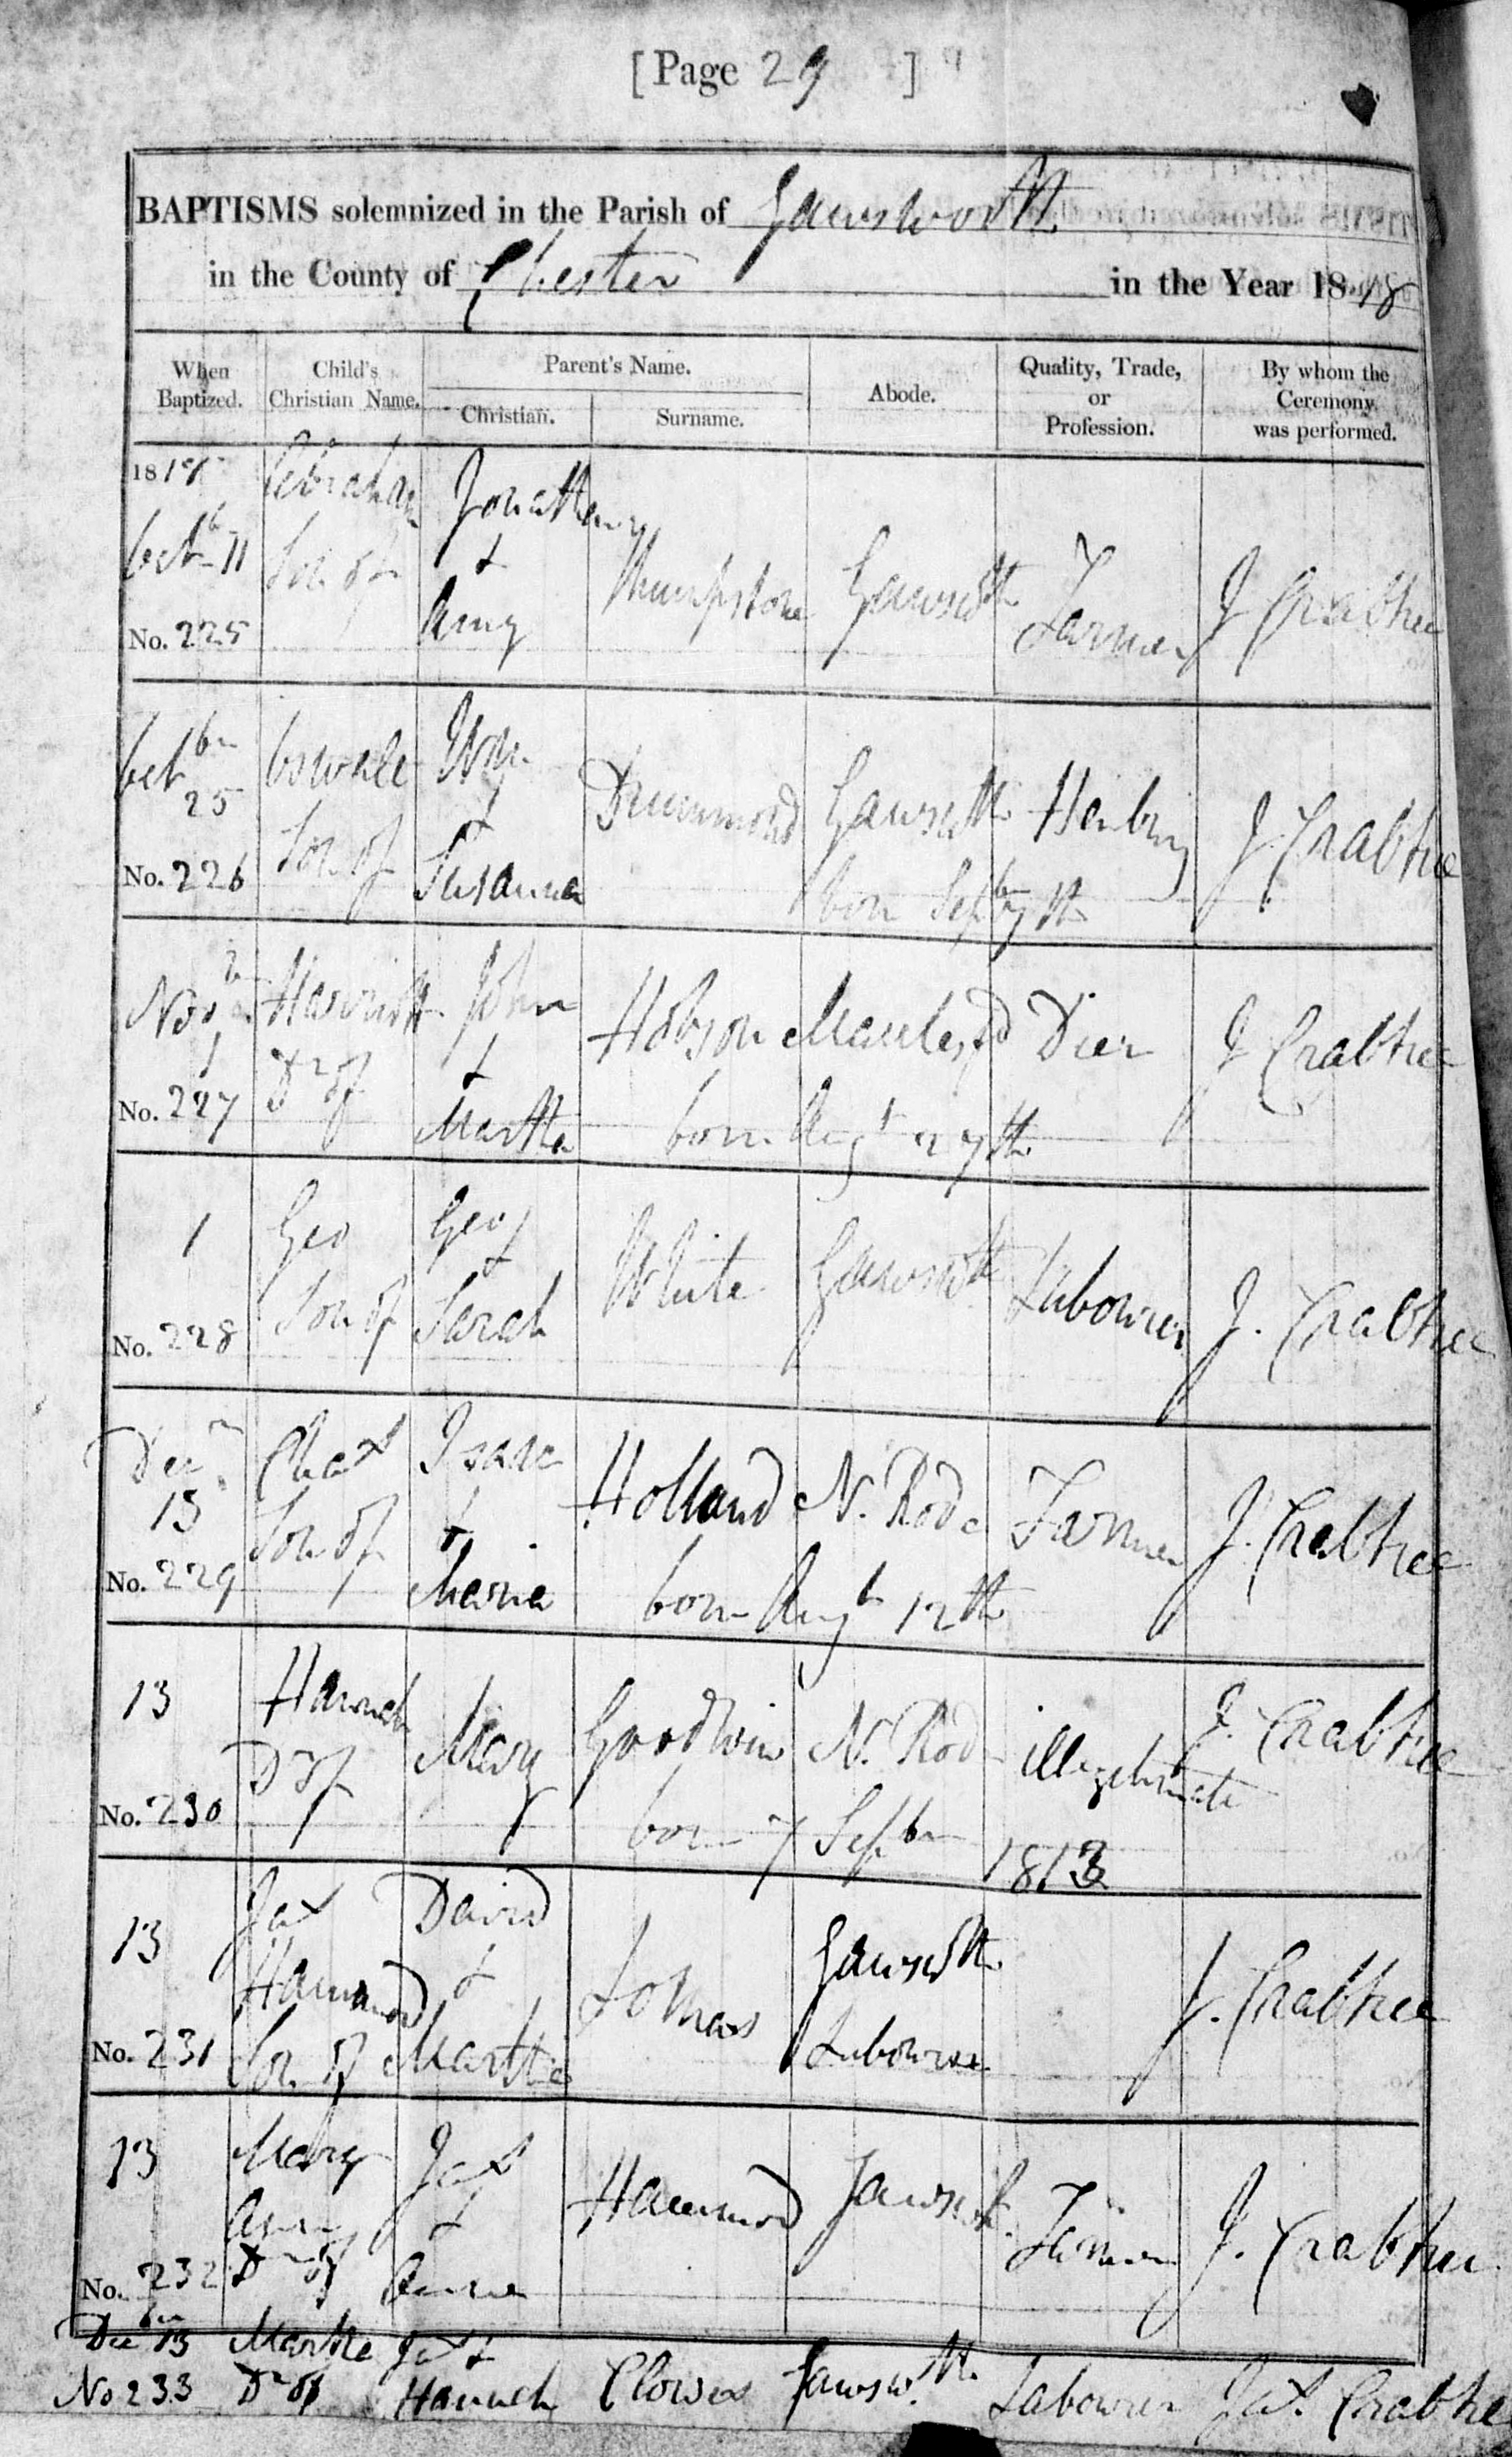 [ Page 29 ]
BAPTISMS solemnized in the Parish of Gawsworth
in the County of Chester in the Year 1818
When Baptized. Child's Christian Name. Parent's Name. Abode. Quality, Trade, or Profession. By whom the Ceremony was performed.
Christian. Surname.
1818 Abraham Jonathan
Octbr 11 Son of & Thumpstone Gawswth Farmer J Crabtree
No. 225 Amy
Octbr 25 Wm
Son of & Drummond Gawswth J. Crabtree
No. 226 Susanna born Sepbr
Novbr 1 Harriett John
Dr of & Hobson Macclesfd Dier J Crabtree
No. 227 Martha born Augt 27th
1 Geo Geo
Son of & White Gawswth Labourer J. Crabtree
No. 228 Sarah
Decr 13 Chas Isaac
Son of & Holland N. Rode Farmer J. Crabtree
No. 229 Maria born Augt 12th
13 Hannah
Dr of Mary Goodwin N. Rode illegitimate J. Crabtree
No. 230 born 7 Sepbr 1813
13 Jas David
Hammond & Lomas Gawswth J. Crabtree
No. 231 Son of Martha Labourer
13 Mary Jas
Ann & Hammond Gawswth Farmer J. Crabtree
No. 232 Dr of Anne
Decbr 13 Martha Jas &
No 233 Dr of Hannah Clowes Gawsw.th Labourer Jas. Crabtree